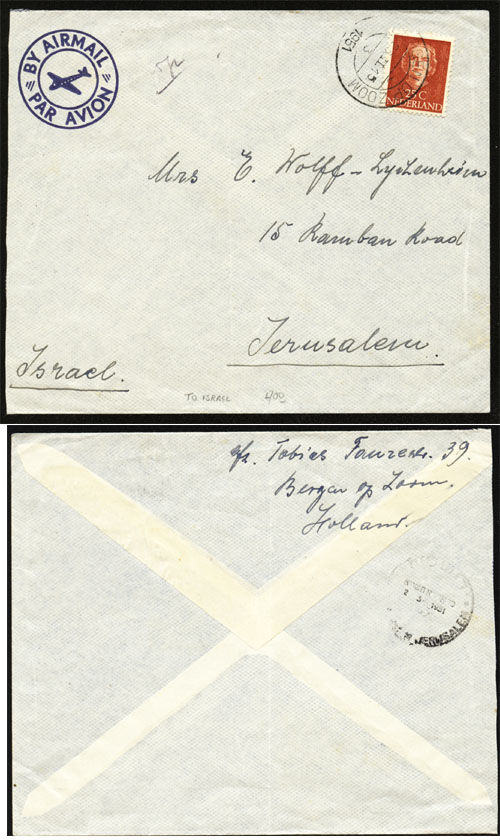 BY AIRMAIL
PAR AVION
1951
ZOOM
25 C
NEDERLAND
Mrs E. Wolff-Lyczenheim
15 Ramban Road
Jerusalem.
Israel.
TO ISRAEL 400
afz. Tobias 39.
Bergen op Zoom.
Holland.
2 3- 1951
JERUSALEM